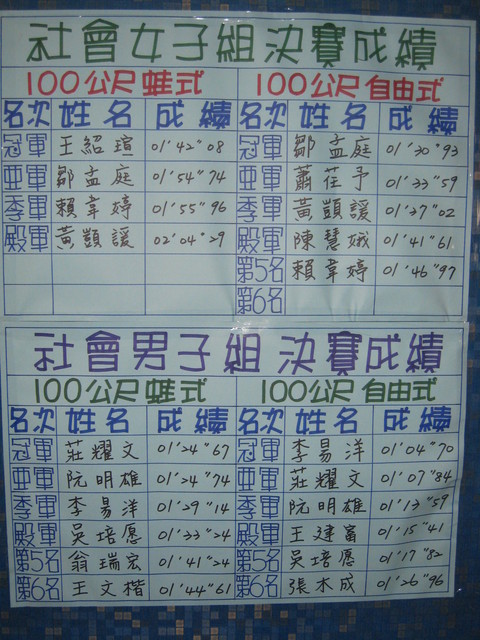 社會女子組決賽成績
100公尺蛙式 100公尺自由式
名次 姓名 成績 名次 姓名 成績
冠軍 王紹瑄 01'42"08 冠軍 鄒孟庭 01'30"93
亞軍 鄒孟庭 01'54"74 亞軍 蕭荏予 01'33"59
季軍 賴韋婷 01'55"96 季軍 黃顗諼 01'37"02
殿軍 黃顗諼 02'04"29 殿軍 陳慧娥 01'41"61
第5名 賴韋婷 01'46"97
第6名
社會男子組決賽成績
100公尺蛙式 100公尺自由式
名次 姓名 成績 名次 姓名 成績
冠軍 莊耀文 01'24"67 冠軍 李易洋 01'04"70
亞軍 阮明雄 01'24"74 亞軍 莊耀文 01'07"84
季軍 李易洋 01'29"14 季軍 阮明雄 01'13"59
殿軍 吳培愿 01'33"24 殿軍 王建富 01'15"41
第5名 翁瑞宏 01'41"24 第5名 吳培愿 01'17"82
第6名 王文楷 01'44"61 第6名 張木成 01'26"96